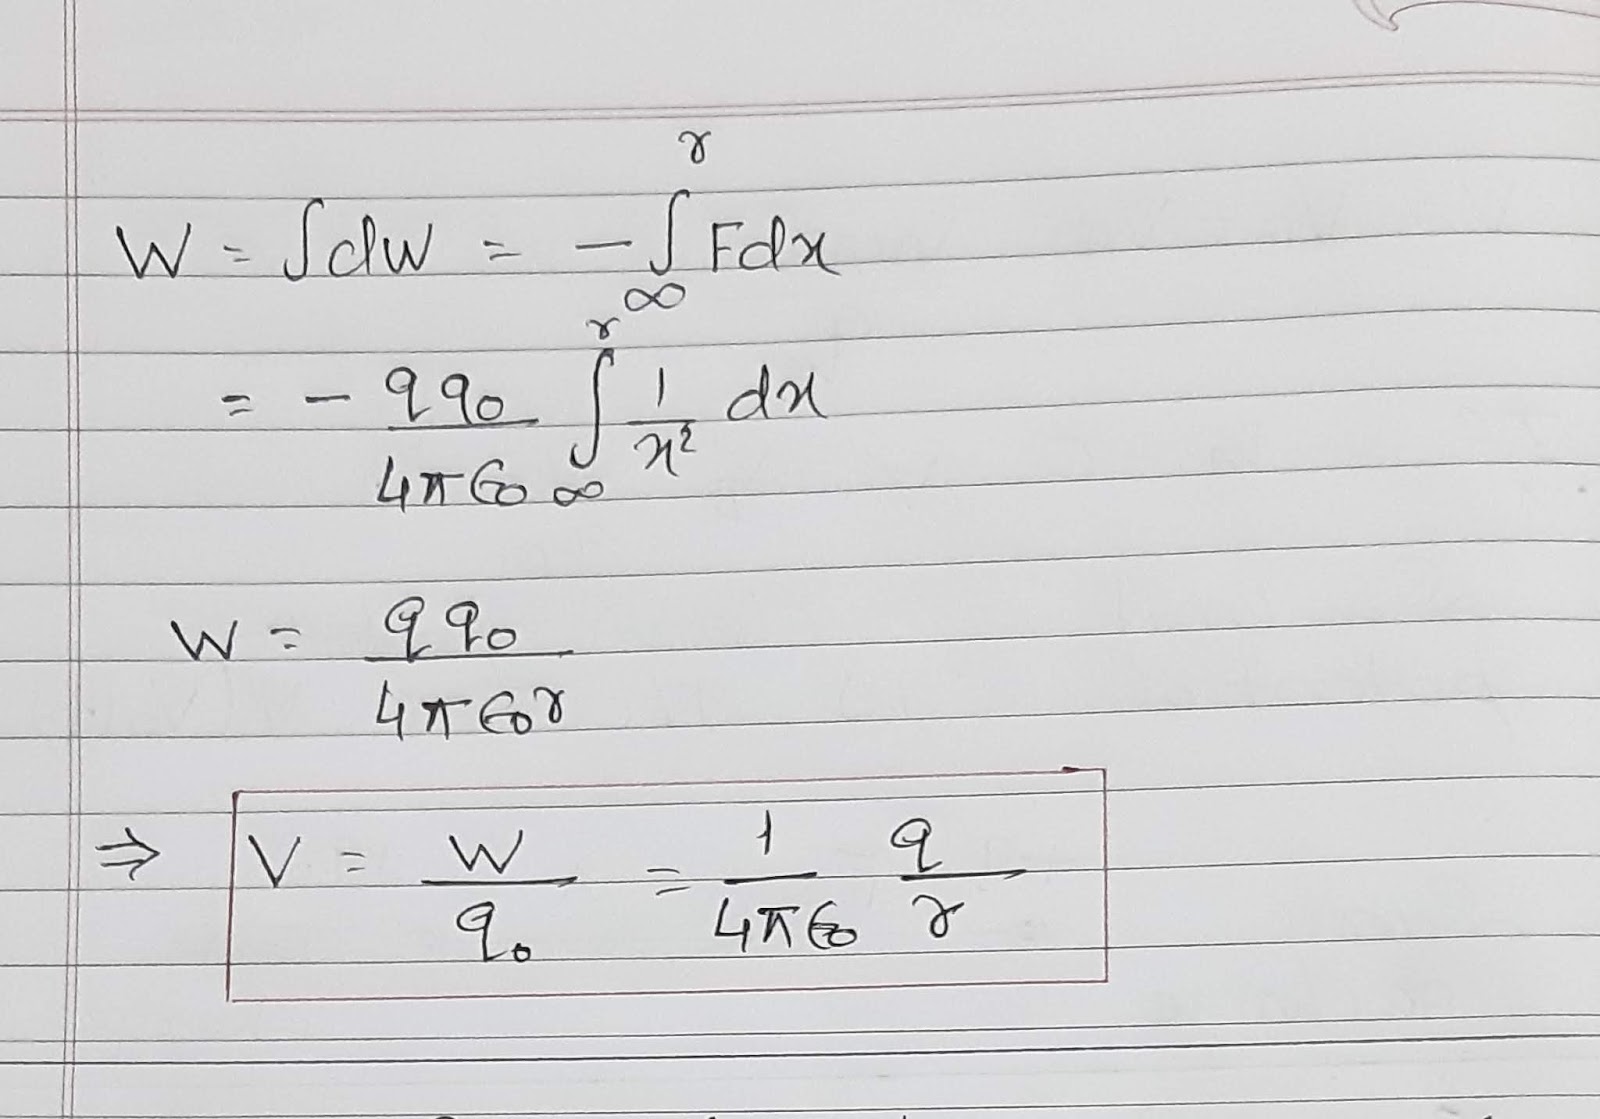 W = ∫dW = -∫_∞^r Fdx
= - qq₀/4πε₀ ∫_∞^r 1/x² dx
W = qq₀/4πε₀r
⇒ V = W/q₀ = 1/4πε₀ q/r